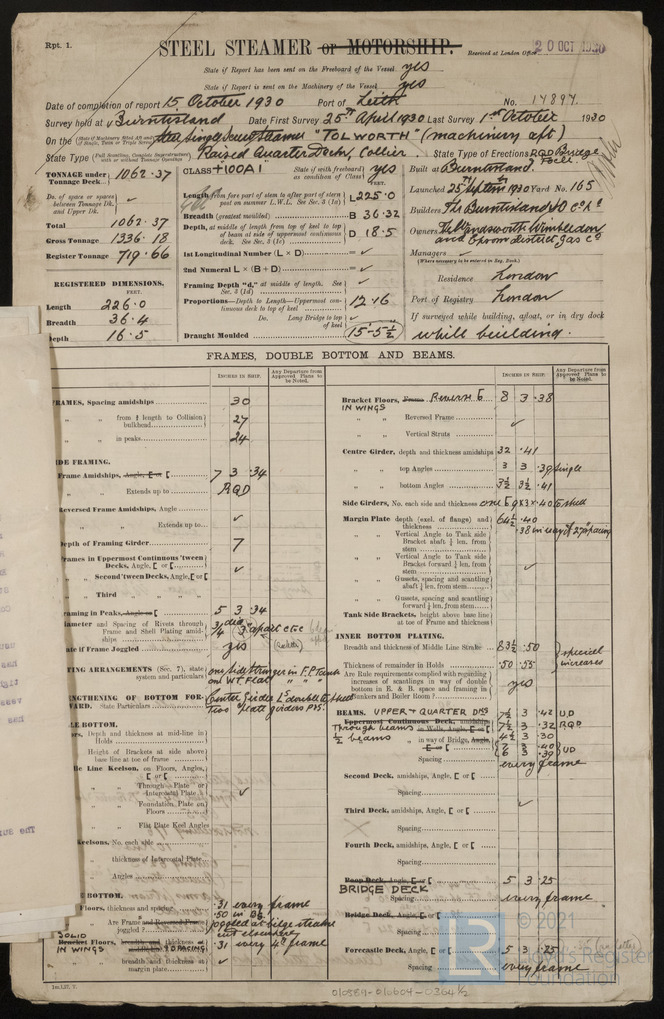 Rpt. 1.
STEEL STEAMER or MOTORSHIP.
Received at London Office
20 OCT 1930
State if Report has been sent on the Freeboard of the Vessel yes
State if Report is sent on the Machinery of the Vessel yes
Date of completion of report 15 October 1930 Port of Leith No. 17897.
Survey held at Burntisland Date First Survey 25th April 1930 Last Survey 1st October 1930
On the Steel Single Screw Steamer "TOLWORTH" (machinery aft)
State Type Raised Quarter Deck, Collier. State Type of Erections RQD Bridge & Focle.
TONNAGE under Tonnage Deck 1062.37
Do. of space or spaces between Tonnage Dk. and Upper Dk. ✓
Total 1062.37
Gross Tonnage 1336.18
Register Tonnage 719.66
REGISTERED DIMENSIONS.
FEET.
Length 226.0
Breadth 36.4
Depth 16.5
CLASS +100A1 State if (with freeboard) as condition of Class yes
FEET.
Length from fore part of stem to after part of stern post on summer L.W.L. See Sec. 3 (1a) L 225.0
Breadth (greatest moulded) B 36.32
Depth, at middle of length from top of keel to top of beam at side of uppermost continuous deck. See Sec. 3 (1c) D 18.5
1st Longitudinal Number (L × D) = ✓
2nd Numeral L × (B + D) = ✓
Framing Depth "d," at middle of length. See Sec. 3 (1d) ✓
Proportions—Depth to Length—Uppermost continuous deck to top of keel 12.16
Do. Long Bridge to top of keel
Draught Moulded 15-5½
Built at Burntisland.
Launched 25 Septem 1930 Yard No. 165
Builders The Burntisland SB Co Ld
Owners The Wandsworth Wimbledon and Epsom district Gas Co
Managers ✓
(Where necessary to be entered in Reg. Book.)
Residence London
Port of Registry London
If surveyed while building, afloat, or in dry dock
while building.
FRAMES, DOUBLE BOTTOM AND BEAMS.
INCHES IN SHIP.
Any Departure from Approved Plans to be Noted.
FRAMES, Spacing amidships 30
" " from ⅗ length to Collision bulkhead 27
" " in peaks 24
SIDE FRAMING.
Frame Amidships, Angle, [ or [ 7 3 .34
" " Extends up to RQD
Reversed Frame Amidships, Angle ✓
" " Extends up to
Depth of Framing Girder 7
Frames in Uppermost Continuous 'tween Decks, Angle, [ or [ ✓
" Second 'tween Decks, Angle, [ or [
" Third " "
Framing in Peaks, Angle or [ 5 3 .34
Diameter and Spacing of Rivets through Frame and Shell Plating amidships 3/4 dia
State if Frame Joggled yes
PANTING ARRANGEMENTS (Sec. 7), state system and particulars one side stringer in F.P. Tank
STRENGTHENING OF BOTTOM FORWARD. State Particulars
DOUBLE BOTTOM.
Floors, Depth and thickness at mid-line in Holds
Height of Brackets at side above base line at toe of frame
Middle Line Keelson, on Floors, Angles, [ or [
" " Through Plate or Intercostal Plate ✓
" " Foundation Plate on Floors
" " Flat Plate Keel Angles
Keelsons, No. each side
" thickness of Intercostal Plate
" Angles
DOUBLE BOTTOM.
Floors, thickness and spacing .31 every frame
.50 in BS.
Are Frame and Reversed Frame joggled? joggled at bilge strake
and elsewhere
SOLID Bracket Floors, breadth and thickness at middle line .31 every 4th frame
IN WINGS & SPACING
" " breadth and thickness at margin plate ✓
Bracket Floors, Frame Reverse [ 8 3 .38
IN WINGS
" " Reversed Frame ✓
" " Vertical Struts
Centre Girder, depth and thickness amidships 32 .41
" " top Angles 3 3 .39 single
" " bottom Angles 3½ 3½ .41
Side Girders, No. each side and thickness
Margin Plate depth (excl. of flange) and thickness
" " Vertical Angle to Tank side Bracket abaft ¼ len. from stem
" " Vertical Angle to Tank side Bracket forward ¼ len. from stem ✓
" " Gussets, spacing and scantling abaft ¼ len. from stem
" " Gussets, spacing and scantling forward ¼ len. from stem
Tank Side Brackets, height above base line at toe of Frame and thickness
INNER BOTTOM PLATING.
Breadth and thickness of Middle Line Strake 83½ .50
Thickness of remainder in Holds .50 .55
special increases
Are Rule requirements complied with regarding increases of scantlings in way of double bottom in E. & B. space and framing in Bunkers and Boiler Room? yes
BEAMS, UPPER + QUARTER DKS
Uppermost Continuous Deck, amidships, 7½ 3 .42 UD
Through beams in Wells, Angle, [ or [ 7½ 3 .32 RQD
½ beams " in way of Bridge, Angle, [ or [
6 3 .39 UD
Spacing every frame
Second Deck, amidships, Angle, [ or [
Spacing ✓
Third Deck, amidships, Angle, [ or [
Spacing
Fourth Deck, amidships, Angle, [ or [
Spacing
Poop Deck, Angle, [ or [ 5 3 .25
BRIDGE DECK
Spacing every frame
Bridge Deck, Angle, [ or [
Spacing
Forecastle Deck, Angle, [ or [ 5 3 .25
Spacing every frame
© 2021
Lloyd's Register
Foundation
LR
010589-010604-0364½